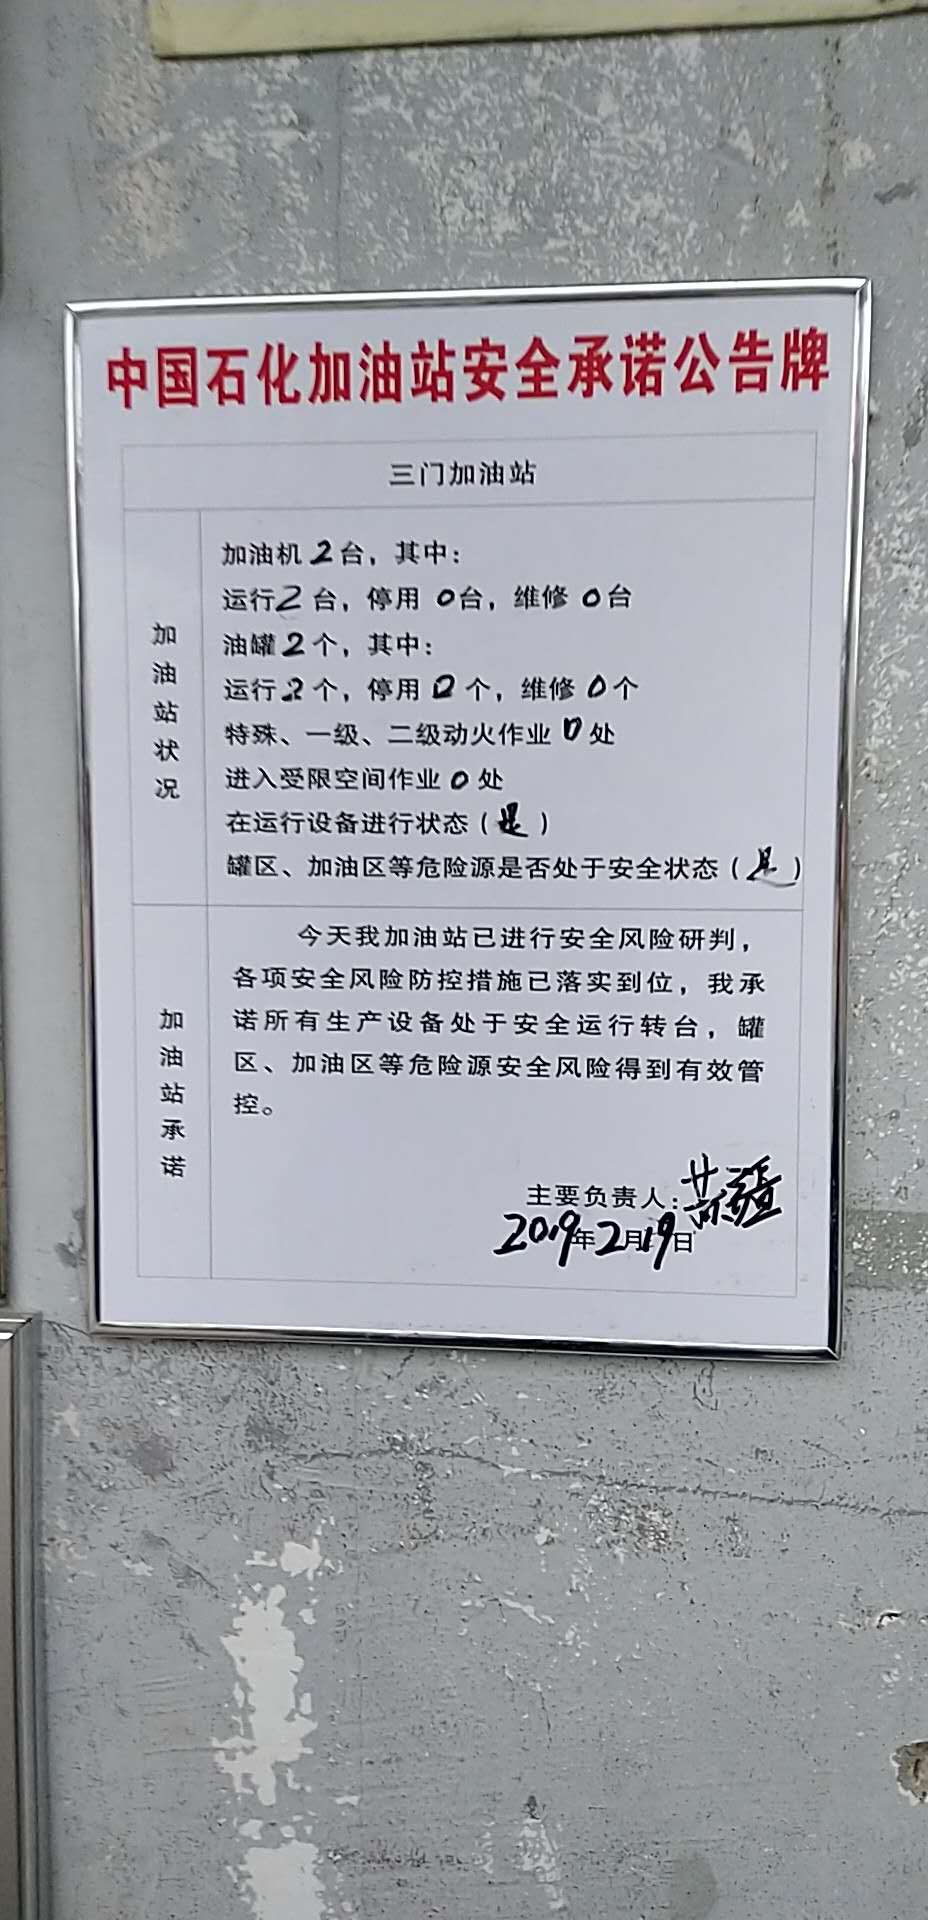 中国石化加油站安全承诺公告牌
三门加油站
加油站状况
加油机2台，其中：
运行2台，停用0台，维修0台
油罐2个，其中：
运行2个，停用0个，维修0个
特殊、一级、二级动火作业0处
进入受限空间作业0处
在运行设备进行状态（是）
罐区、加油区等危险源是否处于安全状态（是）
加油站承诺
今天我加油站已进行安全风险研判，
各项安全风险防控措施已落实到位，我承
诺所有生产设备处于安全运行转台，罐
区、加油区等危险源安全风险得到有效管
控。
主要负责人：
2019年2月19日